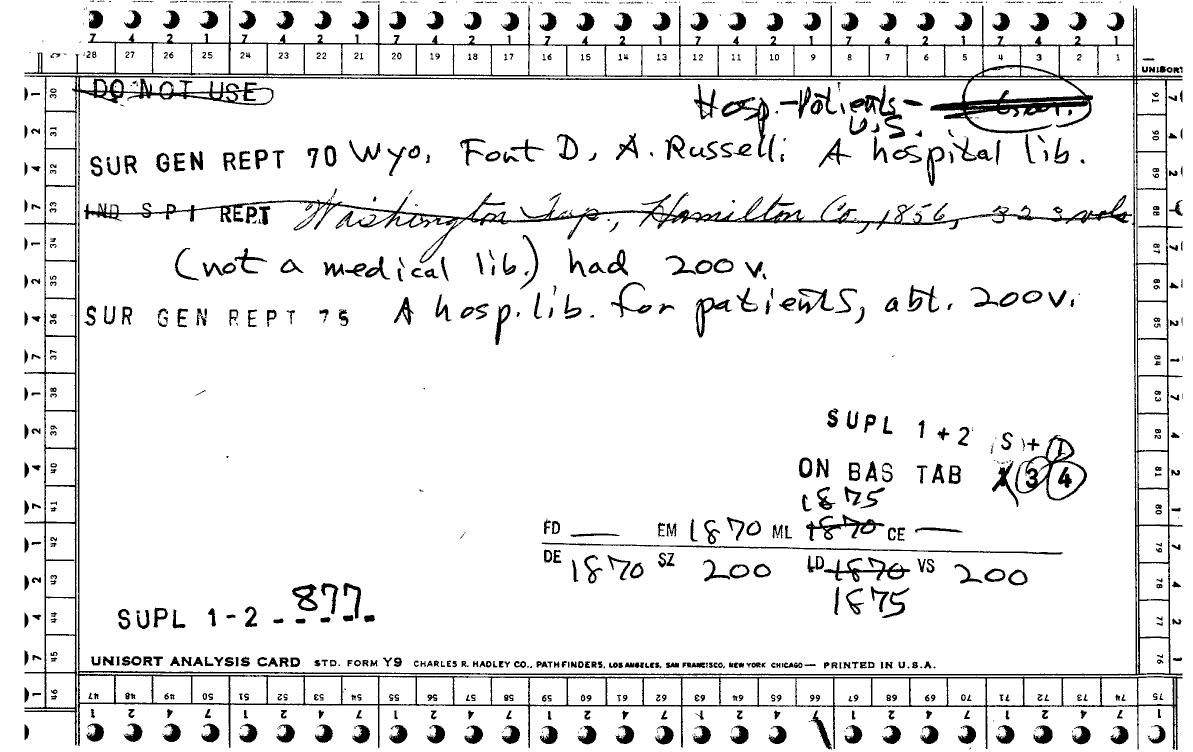 7 4 2 1 7 4 2 1 7 4 2 1 7 4 2 1 7 4 2 1 7 4 2 1 7 4 2 1
29 28 27 26 25 24 23 22 21 20 19 18 17 16 15 14 13 12 11 10 9 8 7 6 5 4 3 2 1 UNISORT
DO NOT USE
Hosp.-Patients-
U.S.
SUR GEN REPT 70 Wyo, Font D, A. Russell: A hospital lib.
IND SPI REPT Washington Twp., Hamilton Co., 1856, 323 vols
(not a medical lib.) had 200 v.
SUR GEN REPT 75 A hosp. lib. for patients, abt. 200 v.
SUPL 1 + 2 S + D
ON BAS TAB 1 3 4
1875
FD — EM 1870 ML 1870 CE —
DE 1870 SZ 200 LD 1870 VS 200
1875
SUPL 1-2 877
UNISORT ANALYSIS CARD STD. FORM Y9 CHARLES R. HADLEY CO., PATHFINDERS, LOS ANGELES, SAN FRANCISCO, NEW YORK CHICAGO — PRINTED IN U.S.A.
46 47 48 49 50 51 52 53 54 55 56 57 58 59 60 61 62 63 64 65 66 67 68 69 70 71 72 73 74 75
1 2 4 7 1 2 4 7 1 2 4 7 1 2 4 7 1 2 4 7 1 2 4 7 1 2 4 7 1